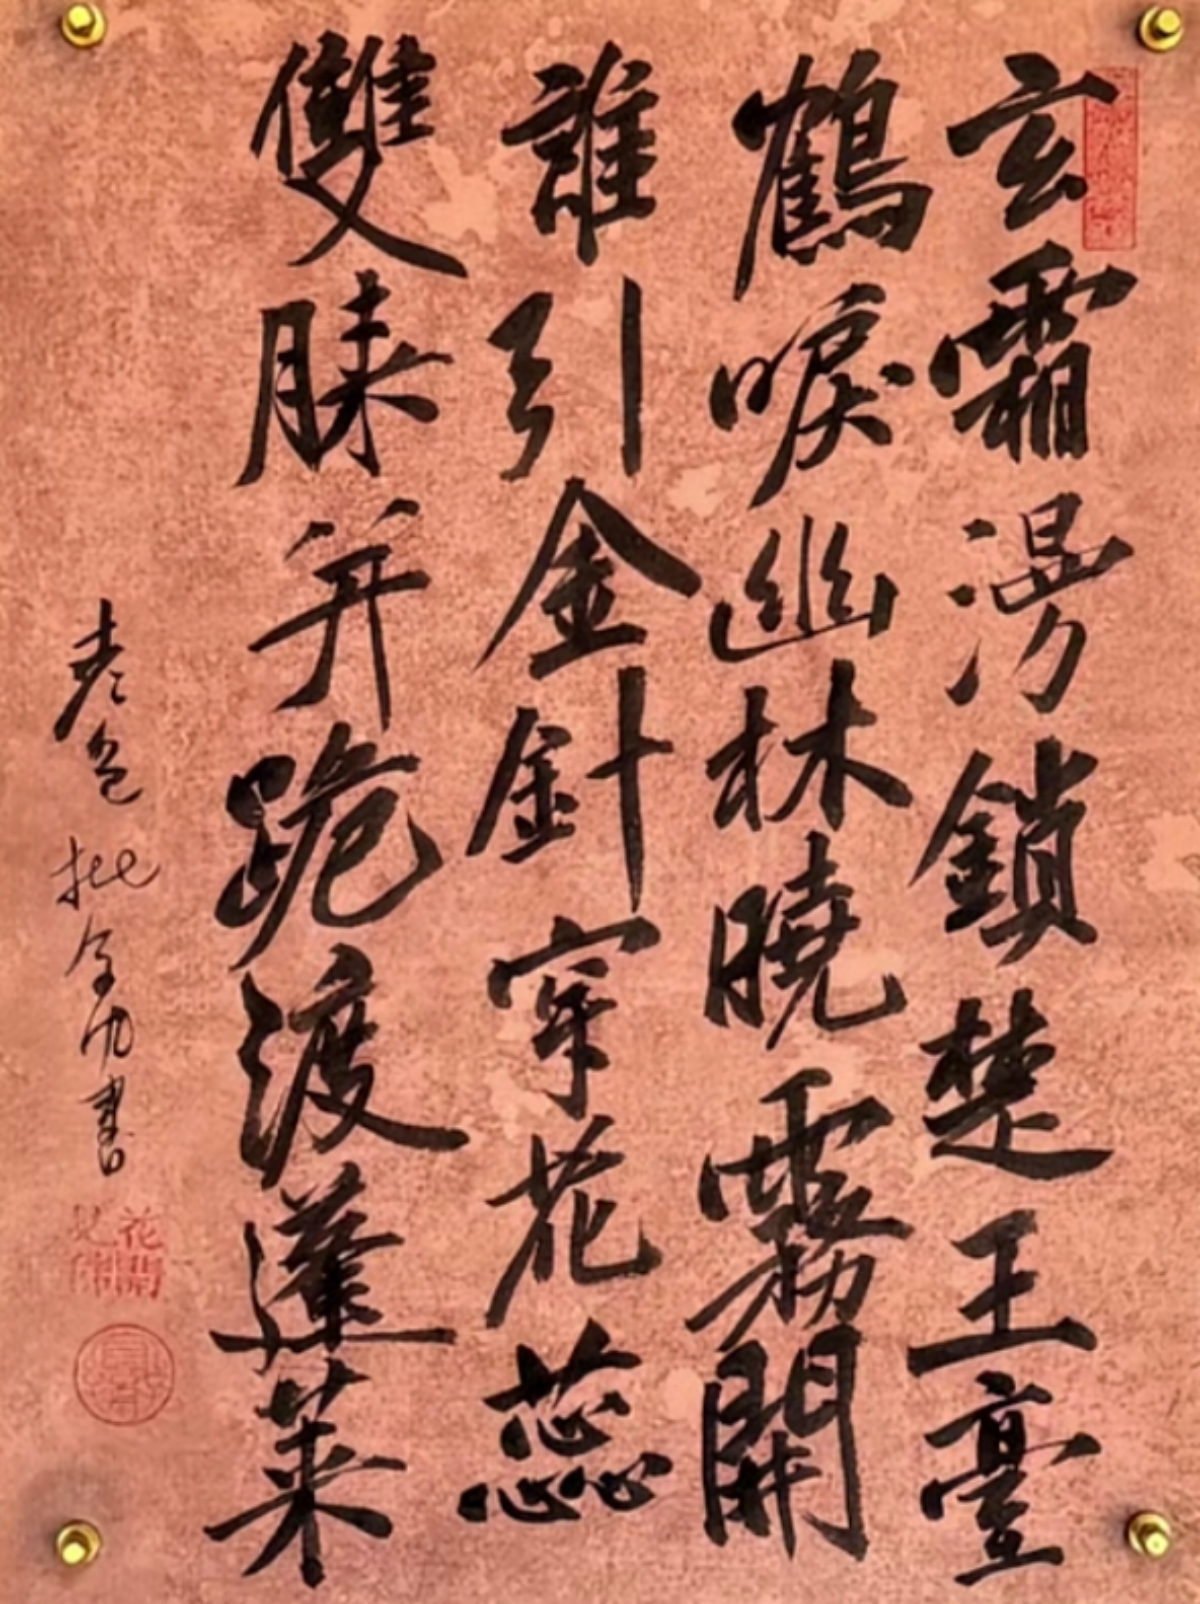 玄霜漫鎖楚王臺
鶴唳幽林曉霧開
誰引金針穿花蕊
雙膝并跪渡蓬萊
書
花開